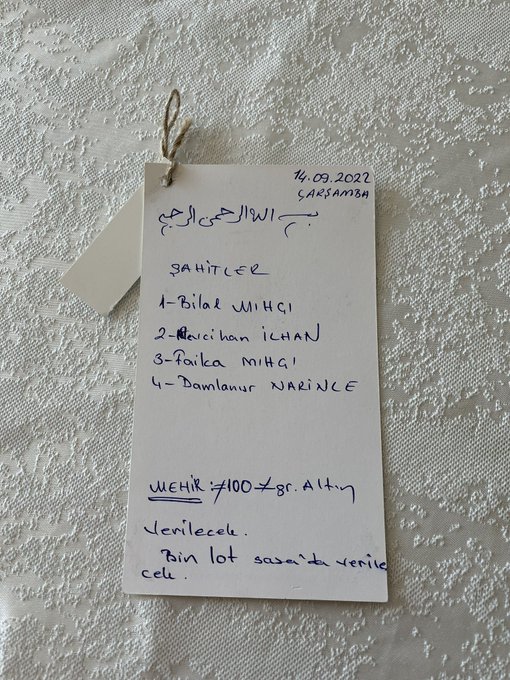 14.09.2022
ÇARŞAMBA
بسم الله الرحمن الرحيم
ŞAHİTLER
1-Bilal MIHGI
2- İLHAN
3-Faika MIHGI
4-Damlanur NARİNCE
MEHİR:≠100≠gr. Altın
Verilecek.
Bin lot sasa'da verile
cek.